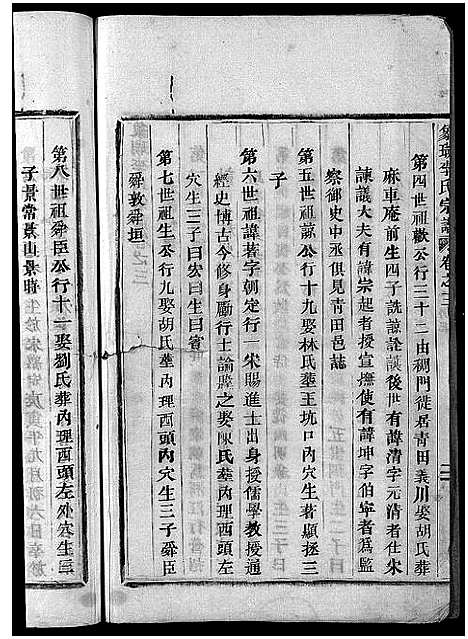 李氏宗譜 卷之三
第四世祖歡公行三十二由桐門徙居青田義川娶胡氏葬
麻車庵前生四子詵諒詮談後世有諱清字元清者仕宋
諫議大夫有諱宗起者授宣撫使有諱坤字伯宰者為監
察御史中丞俱見青田邑誌
第五世諒公行十九娶林氏塟王坑口內穴生著顯拯三
子
第六世祖諱著字朝定行一宋賜進士出身授儒學教授通
經史博古今修身勵行士論譁之娶陳氏塟內理西頭左
穴生三子曰宏曰生曰賓
第七世祖生公行九娶胡氏塟內理西頭內穴生三子舜臣
舜敦舜垣
第八世祖舜臣公行十一娶劉氏葬內理西頭左外穴生三
子景常景山景時